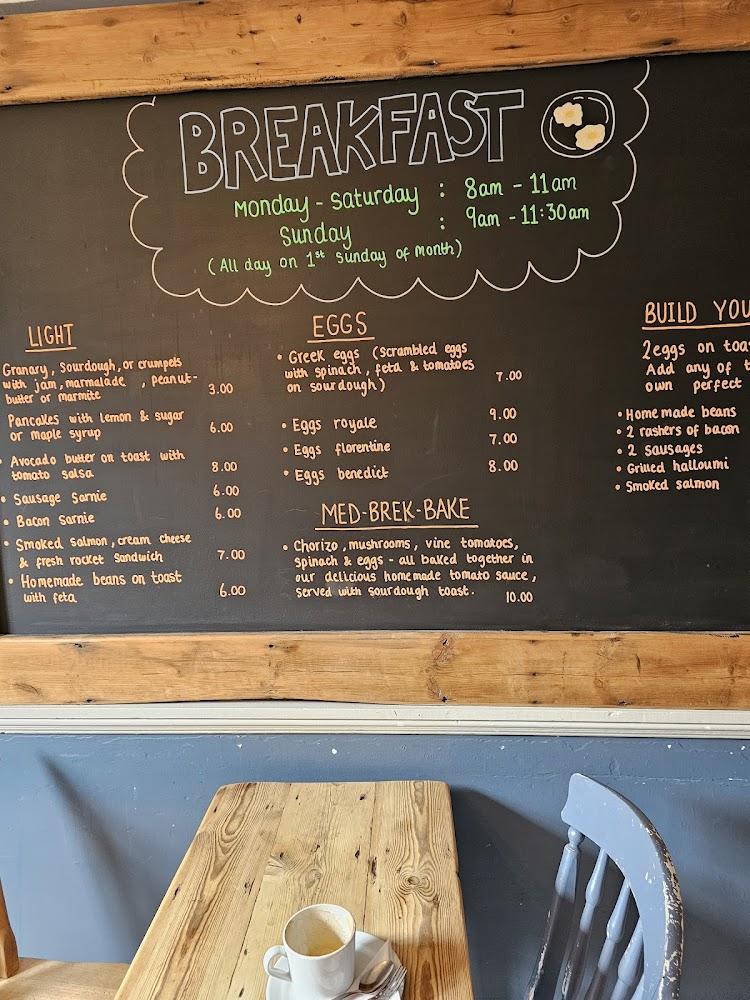 BREAKFAST
Monday - Saturday : 8am - 11am
Sunday : 9am - 11:30am
(All day on 1st Sunday of month)
LIGHT
Granary, Sourdough, or crumpets
with jam, marmalade , peanut-
butter or marmite 3.00
Pancakes with lemon & sugar
or maple syrup 6.00
• Avocado butter on toast with
tomato salsa 8.00
• Sausage Sarnie 6.00
• Bacon Sarnie 6.00
• Smoked Salmon, cream cheese
& fresh rocket Sandwich 7.00
• Homemade beans on toast
with feta 6.00
EGGS
• Greek eggs (Scrambled eggs
with spinach, feta & tomatoes
on sourdough) 7.00
• Eggs royale 9.00
• Eggs florentine 7.00
• Eggs benedict 8.00
MED-BREK-BAKE
• Chorizo, mushrooms, vine tomatoes,
spinach & eggs - all baked together in
our delicious homemade tomato sauce,
served with sourdough toast. 10.00
BUILD YOU
2eggs on toa
Add any of t
own perfect
• Home made beans
• 2 rashers of bacon
• 2 Sausages
• Grilled halloumi
• Smoked salmon